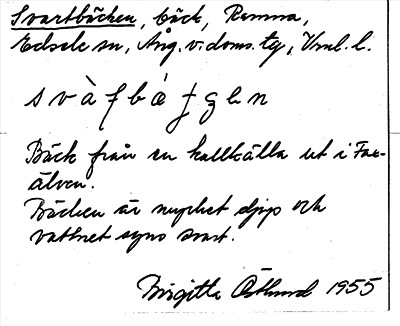 Svartbäcken, bäck, Remma,
Edsele sn, Ång. v. doms. tg, Vnl. l.
svàfbäʄgen
Bäck från en kallkälla ut i Fax-
älven.
Bäcken är mycket djup och
vattnet syns svart.
Birgitta Östlund 1955